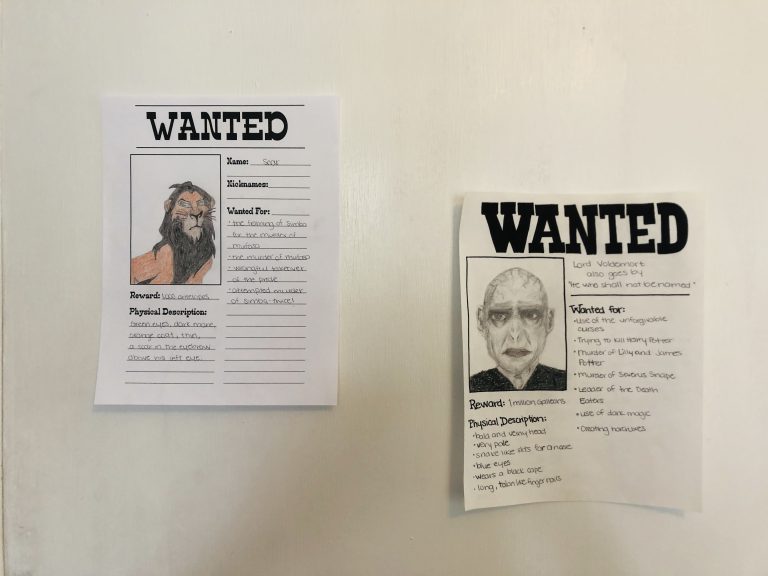 WANTED
Name: Scar
Nicknames:
Wanted For:
· the framing of Simba
for the murder of
mufasa
· the murder of mufasa
· wrongful takeover
of the pride
· attempted murder
of Simba-twice!
Reward: 1,000 antelopes
Physical Description:
Green eyes, dark mane,
orange coat, thin,
a scar in the eyebrow
above his left eye.
WANTED
Lord Voldemort
also goes by
"He who shall not be named"
Wanted for:
· Use of the unforgivable
curses
· Trying to kill Harry Potter
· Murder of Lilly and James
Potter
· Murder of Severus Snape
· Leader of the Death
Eaters
· Use of dark magic
· Creating horcruxes
Reward: 1 million galleons
Physical Description:
· bald and veiny head
· very pale
· snake like slits for a nose
· blue eyes
· wears a black cape
· long, talon like finger nails